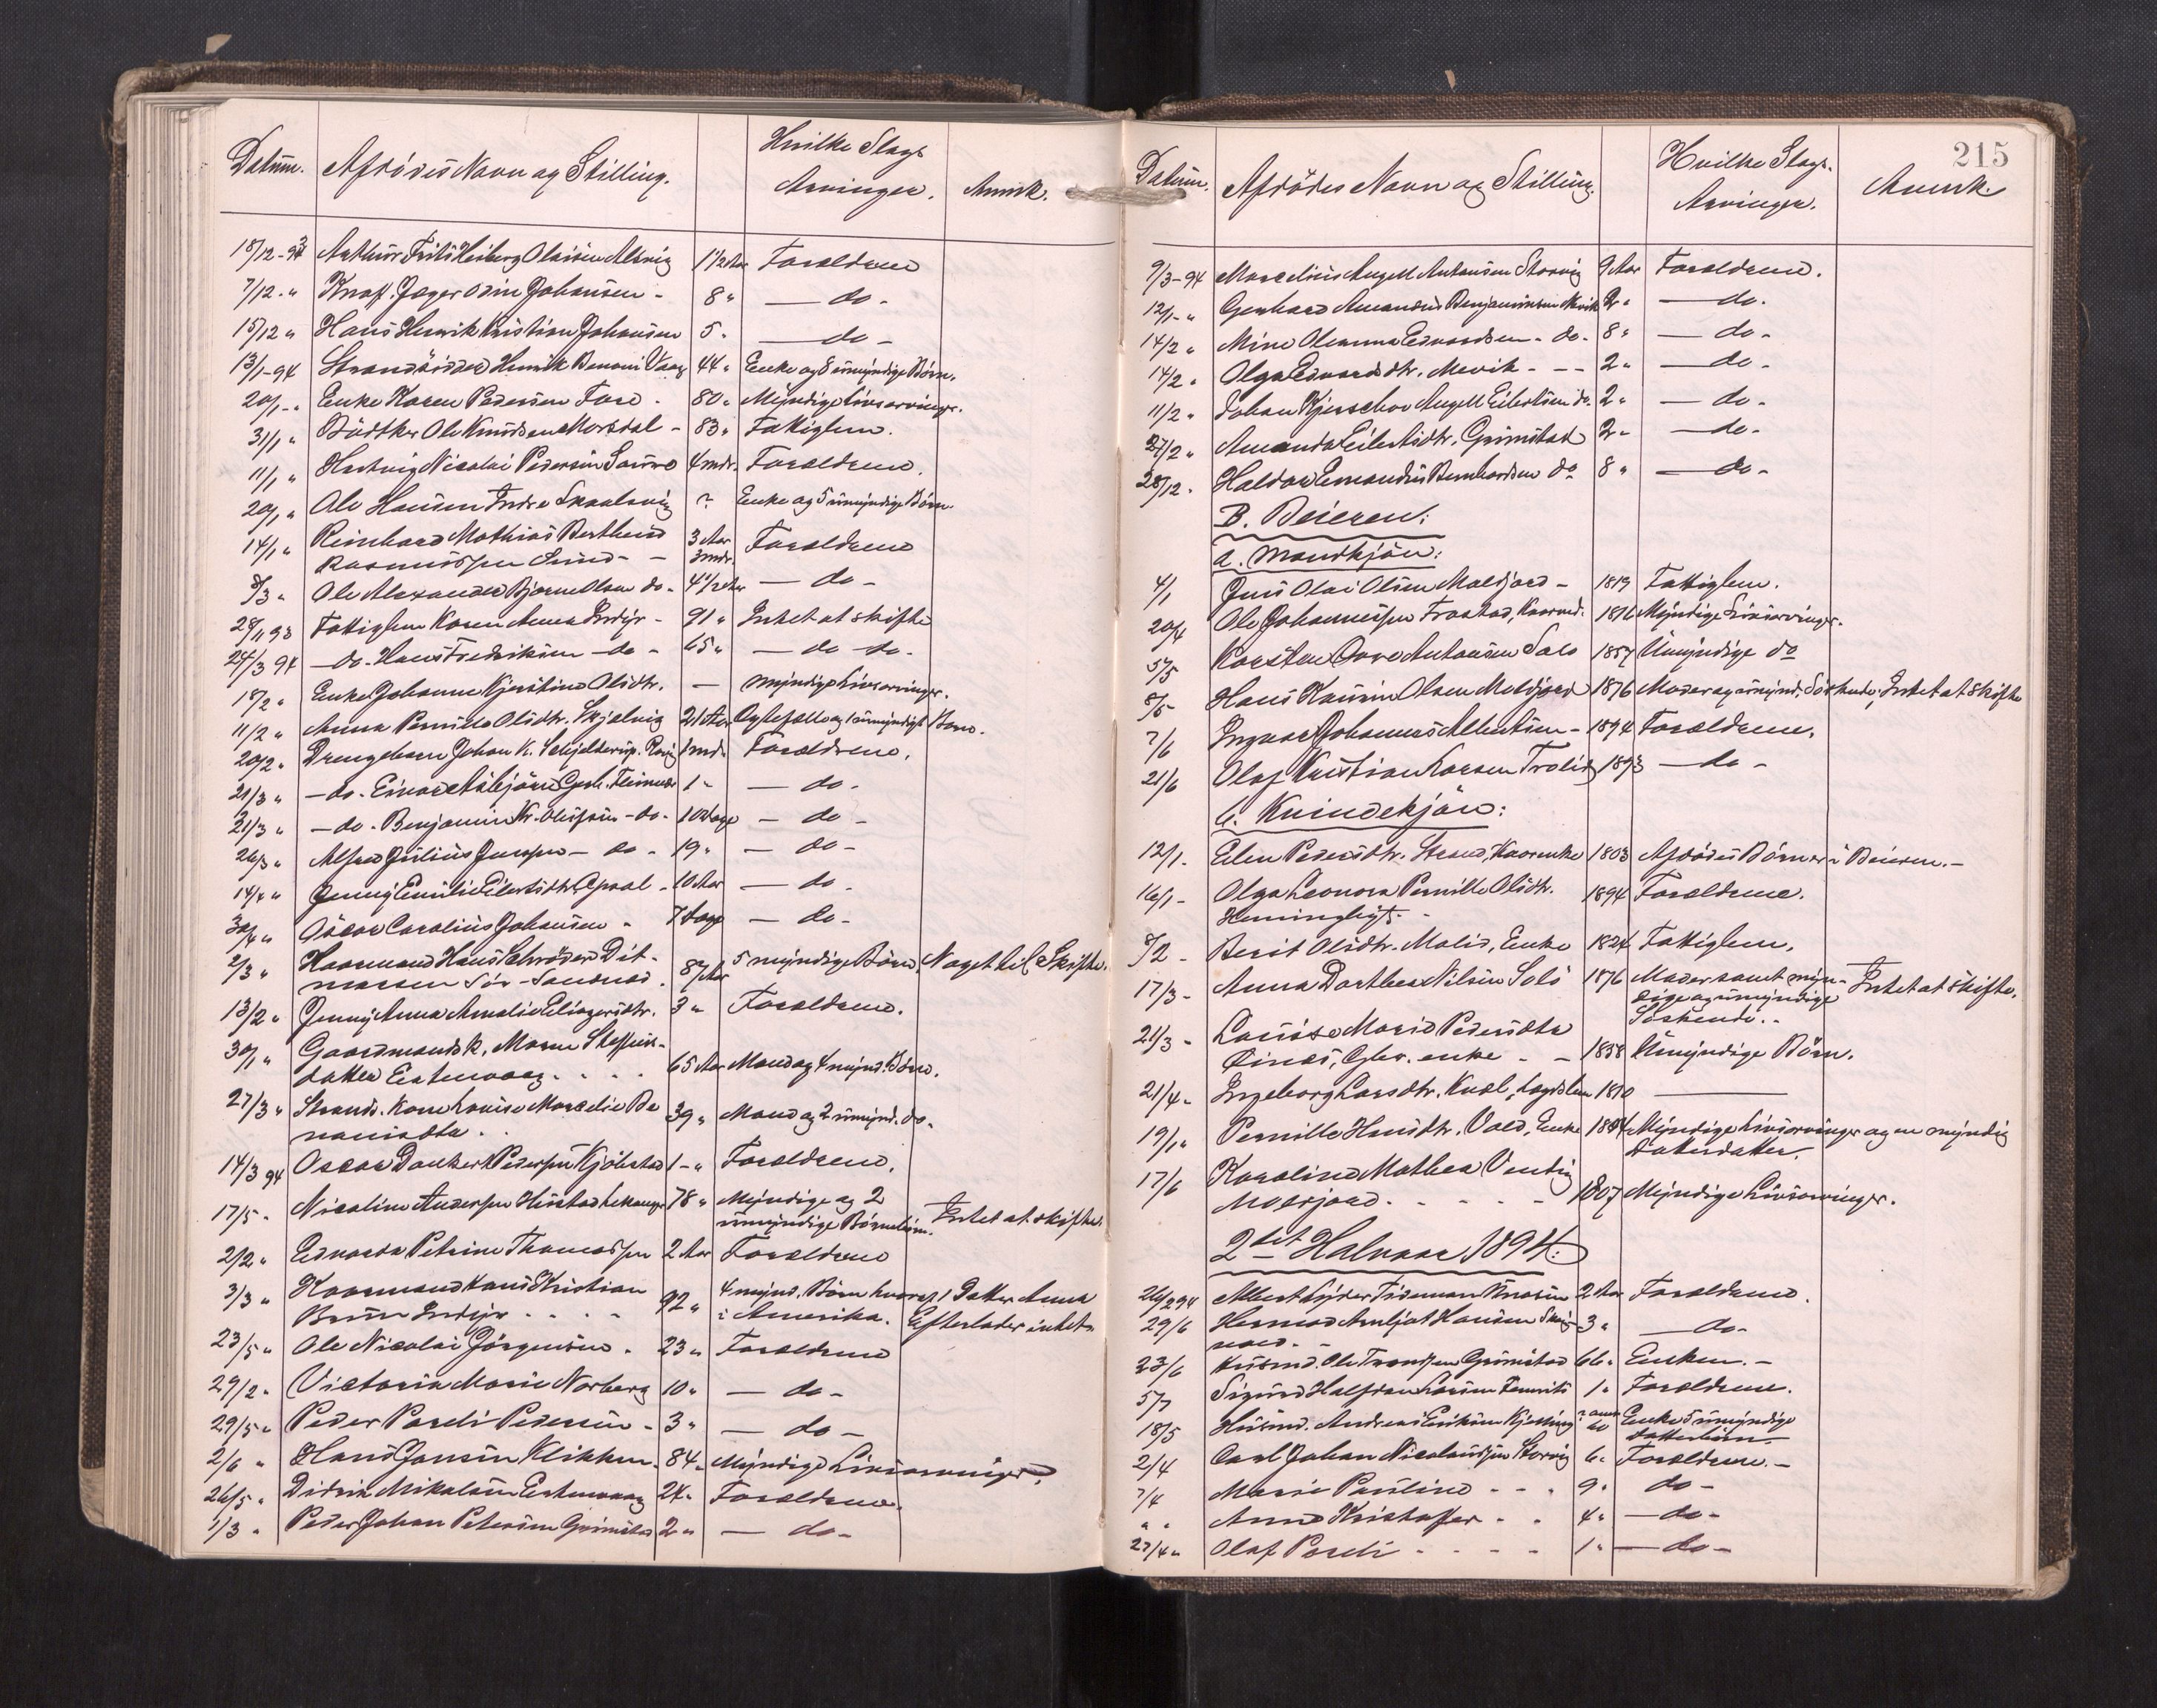 Datum. Afdødes Navn og Stilling. Hvilke Slags Arvinger. Anmk.
18/12-93 Arthur Frits Heiberg Olaisen Alsvig 1 1/2 Aar Forældrene
7/12 " Johansen - 8 " — do -
15/12 " Hans Henrik Kristian Johansen 5 " — do -
13/1-94 Strandsidder Henrik Benoni Vaag 44 " Enke og 8 umyndige Børn.
20/1 - " Enke Karen Pedersen Fore - 80 " Myndige Livsarvinger.
31/1 " Bødtker Ole Knudsen Morsdal - 83 " Fattiglem.
11/1 " Hartvig Nicolai Pedersen 4 mdr. Forældrene.
20/1 " Ole Hansen Indre ? Enke og 5 umyndige Børn
14/1 " Reinhard Mathias Berthens 3 Aar Forældrene
Rasmussen Sund - - 3 mdr.
8/3 " Ole Alexander Bjørn Olsen do - 4 1/2 Aar — do -
28/11 93 Fattiglem Karen Anna Indyr - 91 " Intet at skifte
24/3 94 — do - Hans Fredriksen - do - 65 " — do do -
18/2 " Enke Johanna Kjerstina Olsdtr. — myndige Livsarvinger.
11/2 " Anna Pernille Olsdtr. Skjelvig 21 Aar Ægtefælle og 1 umyndigt Barn.
20/2 " Drengebarn Johan K. Schjelderup 1 md. Forældrene.
21/3 " — do - Einar Asbjørn 1 " — do -
21/3 " — do - Benjamin Kr. - do - 10 Dage — do -
26/3 " Alfred Julius Jensen - do - 19 " — do -
14/4 " Jenny Emilie Eilertsdtr. 10 Aar — do -
30/4 " Oscar Carolius Johansen - 7 Dage — do -
2/3 " Kaarmand Hans Schrøder Dit-
marsen Sør-Sandnes. 87 Aar 5 myndige Børn. Noget til Skifte.
13/2 " Jenny Anna Amalie Eliasersdtr. 3 " Forældrene.
30/1 " Gaardmandsk. Maren Steffens-
datter Eertenvaag. . . . 65 Aar Mand og 4 mynd. Børn.
27/3 " Strands. Kone Louise Marcelie Be 39 " Mand og 2 umynd. do.
nonisdtr . .
14/3 94 Oscar Dankert Pedersen Kjøbstad 1 - " Forældrene.
17/5 - Nicoline Andersen 78 " Myndige og 2
umyndige Børnebørn. Intet at skifte.
2/2 " Edvarda Petrine Thomassen 2 Aar Forældrene
3/3 " Kaarmand Hans Kristian 92 " 4 mynd. Børn hvoraf 1 Datter Anna
Bruun Indyr . . . . i Amerika. Efterlader intet.
23/5 " Ole Nicolai Jørgensen - 23 " Forældrene
29/2 " Victoria Marie Norberg 10 " — do -
29/5 " Peder Pareli Pedersen - 3 " — do -
2/6 " Hans Jansen Klikken - 84 " Myndige Livsarvinger.
26/5 " Didrik Mikalsen Eertenvaag 24 " Forældrene.
1/3 " Peder Johan Petersen Grimstad 2 " — do -
215
Datum. Afdødes Navn og Stilling. Hvilke Slags Arvinger. Anmk.
9/3-94 Marselius Angell Antonsen Storvig 9 Aar Forældrene.
12/1 - " Gerhard Amandus Benjaminsen Mevik 2 " — do -
14/2 " Mina Oleanna Edvardsen - do - 8 " — do -
14/2 " Olga Edvardsdtr. Mevik - - - 2 " — do -
11/2 " Johan Kjerschov Angell Eilertsen do. 2 " — do -
27/2 " Amanda Eilertsdtr. Grimstad 2 - — do -
28/12 - Haldor Emandus Bernhardsen do 8 " — do -
B. Beieren:
a. Mandkjøn:
4/1 Jens Olai Olsen Moldjord - 1819 Fattiglem.
20/4 Ole Johannessen Trostad, Kaarmd. 1816 Myndige Livsarvinger.
5/5 Karsten Antonsen Solø 1857 Umyndige do
8/5 Hans Kausrin Olsen Moldjord 1876 Moder og umynd. Søskende, Intet at skifte
7/6 Ingvart Johannes Albertsen - 1894 Forældrene.
21/6 Olaf Kristian Larsen Trolid 1893 — do -
b. Kvindekjøn:
12/1 - Elen Pedersdtr. Strand, Kaarenke 1803 Afdødes Børn er i Beieren. -
16/1 - Olga Leonora Pernille Olsdtr. 1894 Forældrene.
Hemminghyt. -
8/2 - Berit Olsdtr. Molid, Enke 1824 Fattiglem.
17/3 - Anna Dorthea Nilsen Solø 1876 Moder samt myn- Intet at skifte.
dige og umyndige
Søskende. -
21/3 - Louise Marie Pedersdtr
Øines, Gbr. enke - - 1858 Umyndige Børn.
21/4 - Ingeborg Larsdtr. Kvæl, Lægdslem 1810 ———
19/1 " Pernille Hansdtr. Vold, Enke 1814 Myndige Livsarvinger og en myndig
Datterdatter.
17/6 Karoline Mathea Vensdtr
Moldjord . - - - - - 1807 Myndige Livsarvinger.
2det Halvaar 1894:
26/2 94 Albert Lyder Tideman 2 Aar Forældrene.
29/6 Herman Arnljot Hansen 3 " — do -
23/6 Husmd. Ole Grimstad 66 " Enken. -
5/7 Sigurd Halfdan Larsen 1 " Forældrene.
18/5 Husmd. Andreas Eriksen Enke 5 umyndige
Datterbørn
2/4 Carl Johan Nicolaisen Storvig 6 " Forældrene. -
7/4 Marie Pauline - - - 9 " do -
" " Anna Kristoffer - - 4 " — do -
27/4 " Olaf Pareli - - - - 1 " — do -